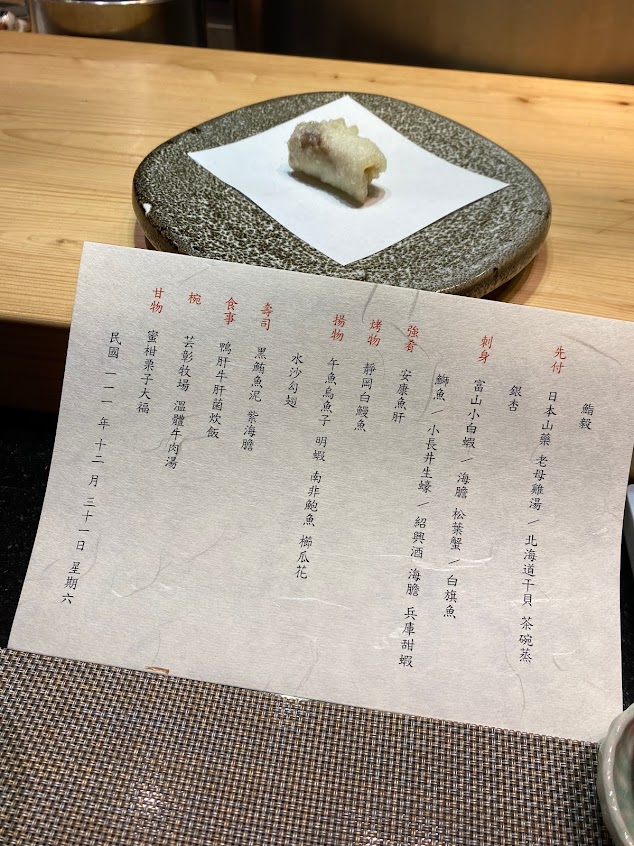 鮨毅
先付 日本山藥 老母雞湯 / 北海道干貝 茶碗蒸
銀杏
刺身 富山小白蝦 / 海膽 松葉蟹 / 白旗魚
鰤魚 / 小長井生蠔 / 紹興酒 海膽 兵庫甜蝦
強肴 安康魚肝
烤物 靜岡白鰻魚
揚物 午魚烏魚子 明蝦 南非鮑魚 櫛瓜花
水沙勾翅
壽司 黑鮪魚泥 紫海膽
食事 鴨肝牛肝菌炊飯
椀 芸彰牧場 溫體牛肉湯
甘物 蜜柑栗子大福
民國 一一一 年 十二 月 三十一日 星期六